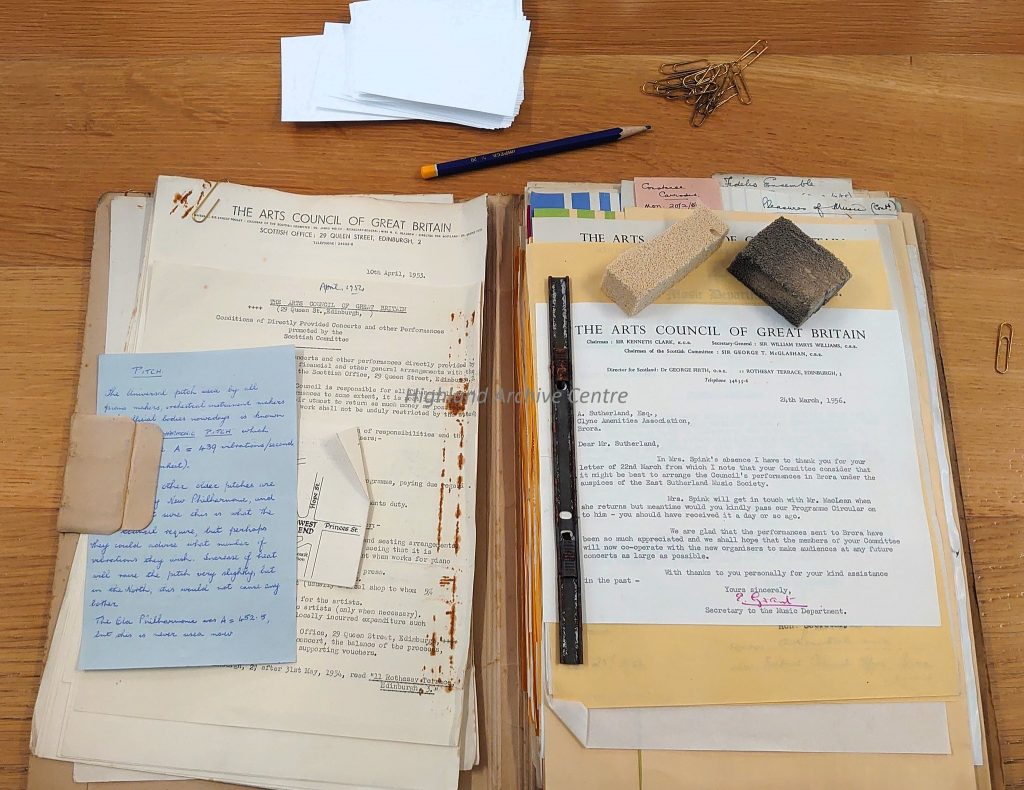 THE ARTS COUNCIL OF GREAT BRITAIN
SCOTTISH OFFICE: 29 QUEEN STREET, EDINBURGH, 2
10th April, 1953.
April, 1952
++++ THE ARTS COUNCIL OF GREAT BRITAIN
(29 Queen St., Edinburgh, )
Conditions of Directly Provided Concerts and other Performances
promoted by the
Scottish Committee
certs and other performances directly provided
financial and other general arrangements with the
Scottish Office, 29 Queen Street, Edinburgh
Council is responsible for all
to some extent, it is
utmost to return as much money
work shall not be unduly restricted by the
of responsibilities and the
programme, paying due
ants duty.
and seating arrangements
that it is
when works for piano
press.
(usually local shop to whom 5%
for the artists.
artists (only when necessary).
locally incurred expenditure such
Office, 29 Queen Street, Edinburgh
concert, the balance of the proceeds,
supporting vouchers.
after 31st May, 1954, read "11 Rothesay Terrace
Edinburgh, 3."
PITCH.
The Universal pitch used by all
piano makers, orchestral instrument makers
official bodies nowadays is known
HARMONIC PITCH which
A = 439 vibrations/second
other older pitches are
New Philharmonic, and
sure this is what the
Council require, but perhaps
they could advise what number of
vibrations they wish. Increase of heat
will raise the pitch very slightly, but
in the North, this would not cause any
bother
The Old Philharmonic was A = 452.5,
but this is never used now
Hope St.
WEST
END
Princes St.
Constance
Carrodus
Mon. 20/2/
Fidelio Ensemble
Pleasures of Music
THE ARTS OF GREAT BRITAIN
THE ARTS COUNCIL OF GREAT BRITAIN
Chairman : SIR KENNETH CLARK, K.C.B. Secretary-General : SIR WILLIAM EMRYS WILLIAMS, C.B.E.
Chairman of the Scottish Committee : SIR GEORGE T. McGLASHAN, C.B.E.
Director for Scotland: Dr GEORGE FIRTH, O.B.E. 11 ROTHESAY TERRACE, EDINBURGH, 3
Telephone 34635-6
24th March, 1956.
A. Sutherland, Esq.,
Clyne Amenities Association,
Brora.
Dear Mr. Sutherland,
In Mrs. Spink's absence I have to thank you for your
letter of 22nd March from which I note that your Committee consider that
it might be best to arrange the Council's performances in Brora under the
auspices of the East Sutherland Music Society.
Mrs. Spink will get in touch with Mr. MacLean when
she returns but meantime would you kindly pass our Programme Circular on
to him - you should have received it a day or so ago.
We are glad that the performances sent to Brora have
been so much appreciated and we shall hope that the members of your Committee
will now co-operate with the new organisers to make audiences at any future
concerts as large as possible.
With thanks to you personally for your kind assistance
in the past -
Yours sincerely,
E. Grant
Secretary to the Music Department.
Highland Archive Centre